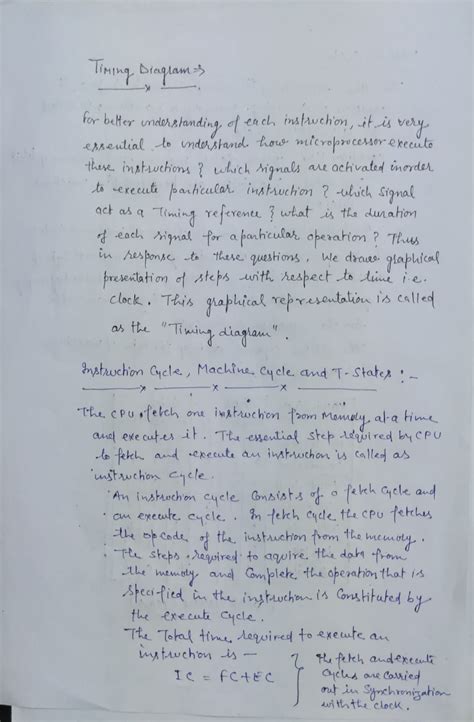 Timing Diagram ⇒
For better understanding, of each instruction, it is very
essential to understand how microprocessor execute
these instructions ? which signals are activated inorder
to execute particular instruction ? which Signal
act as a Timing reference ? what is the duration
of each signal for a particular operation ? Thus
in response to these questions. We draw graphical
presentation of steps with respect to time i.e.
clock. This graphical representation is called
as the "Timing diagram".
Instruction Cycle, Machine Cycle and T-States :-
The CPU fetch one instruction from Memory at a time
and executes it. The essential step required by CPU
to fetch and execute an instruction is called as
instruction cycle.
An instruction cycle Consists of a fetch cycle and
an execute cycle. In fetch cycle the CPU fetches
the opcode of the instruction from the memory.
The steps required to aquire the data from
the memory and Complete the operation that is
specified in the instruction is Constituted by
the execute Cycle.
The Total time required to execute an
instruction is —
IC = FC + EC
The fetch and execute
Cycles are carried
out in Synchronization
with the clock.